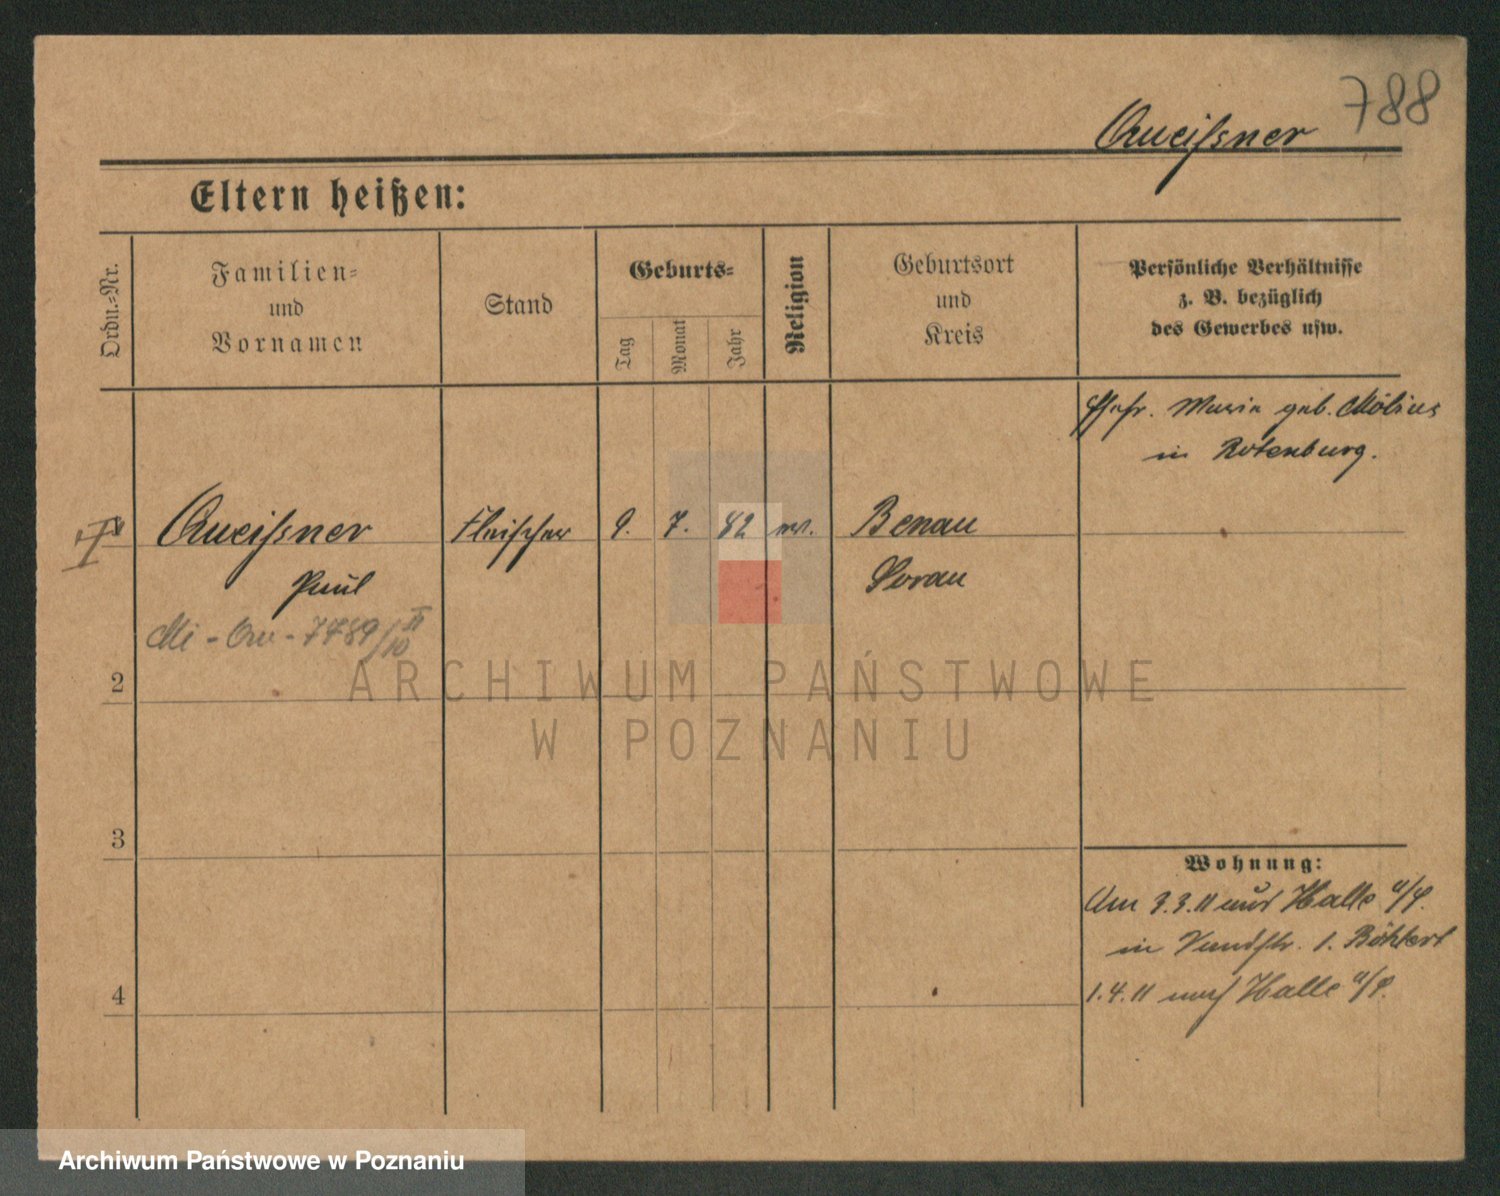 788
Queißner
Eltern heißen:
Ordn.-Nr.
Familien-
und
Vornamen
Stand
Geburts-
Tag
Monat
Jahr
Religion
Geburtsort
und
Kreis
Persönliche Verhältnisse
z. B. bezüglich
des Gewerbes usw.
Ehefr. Marie geb. Möbius
in Rotenburg.
Queißner
Fleischer
9. 7. 82 ev.
Benau
Paul
Sorau
Mi - Qu - 7489/10 II
2
ARCHIWUM PAŃSTWOWE
W POZNANIU
3
Wohnung:
Am 3.3.11 aus Halle a/S.
in Sandstr. 1. Böhlert
4
1.4.11 nach Halle a/S.
Archiwum Państwowe w Poznaniu